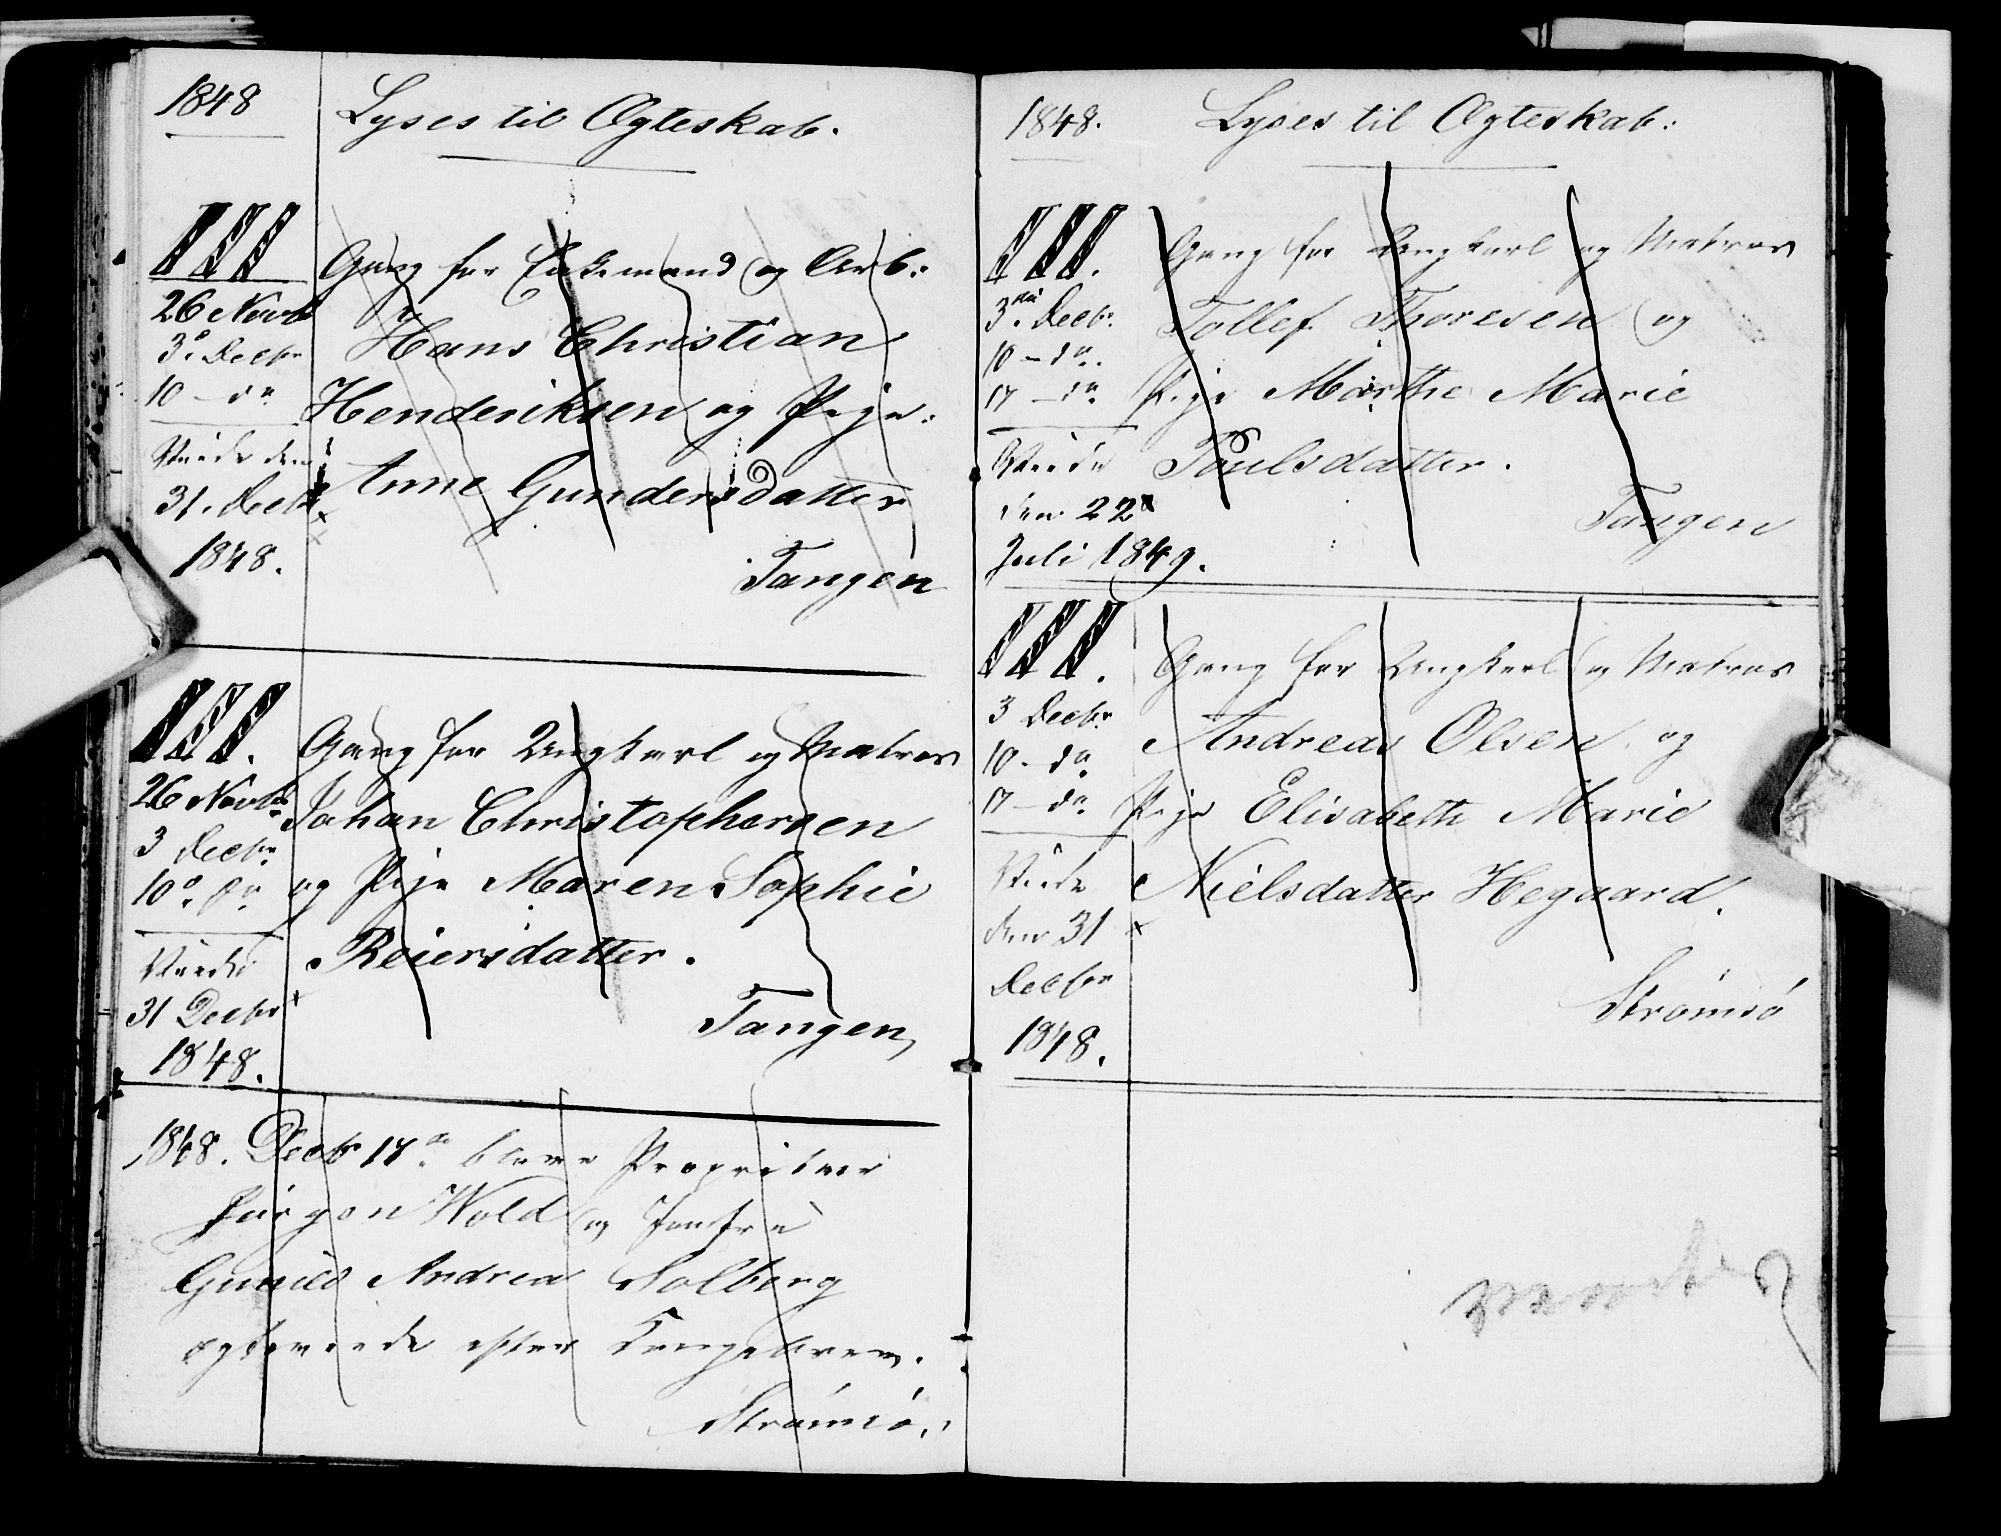 1848
Lyses til Ægteskab.
III
Gang for Enkemand og Arb:
26 Novbr
Hans Christian
3die Decbr
Henderiksen og Pige:
10 – do
Viede den
Anne Gundersdatter
31. Decbr
1848.
Tangen
III.
Gang for Ungkarl og Matros
26 Novbr
Johan Christophersen
3 Decbr
og Pige Maren Sophie
10de do
Reiersdatter.
Viede
31 Decbr
Tangen,
1848.
1848. Decbr 17de bleve Propritær
Jürgen Wold og Jomfru
Gunild Andrea Solberg
ægteviede efter Kongebrev.
Strömsö.
1848.
Lyses til Ægteskab:
III.
Gang for Ungkarl og Matros
3die Decbr.
Tollef Thoresen og
10 – do.
17 – do
Pige Marthe Marie
Viede
Poulsdatter.
den 22de
Tangen
Juli 1849.
III.
Gang for Ungkarl og Matros
3 Decbr
Andreas Olsen og
10. do
17 – do
Pige Elisabeth Marie
Viede
Nielsdatter Hegaard.
den 31
Decbr
Strömsö
1848.